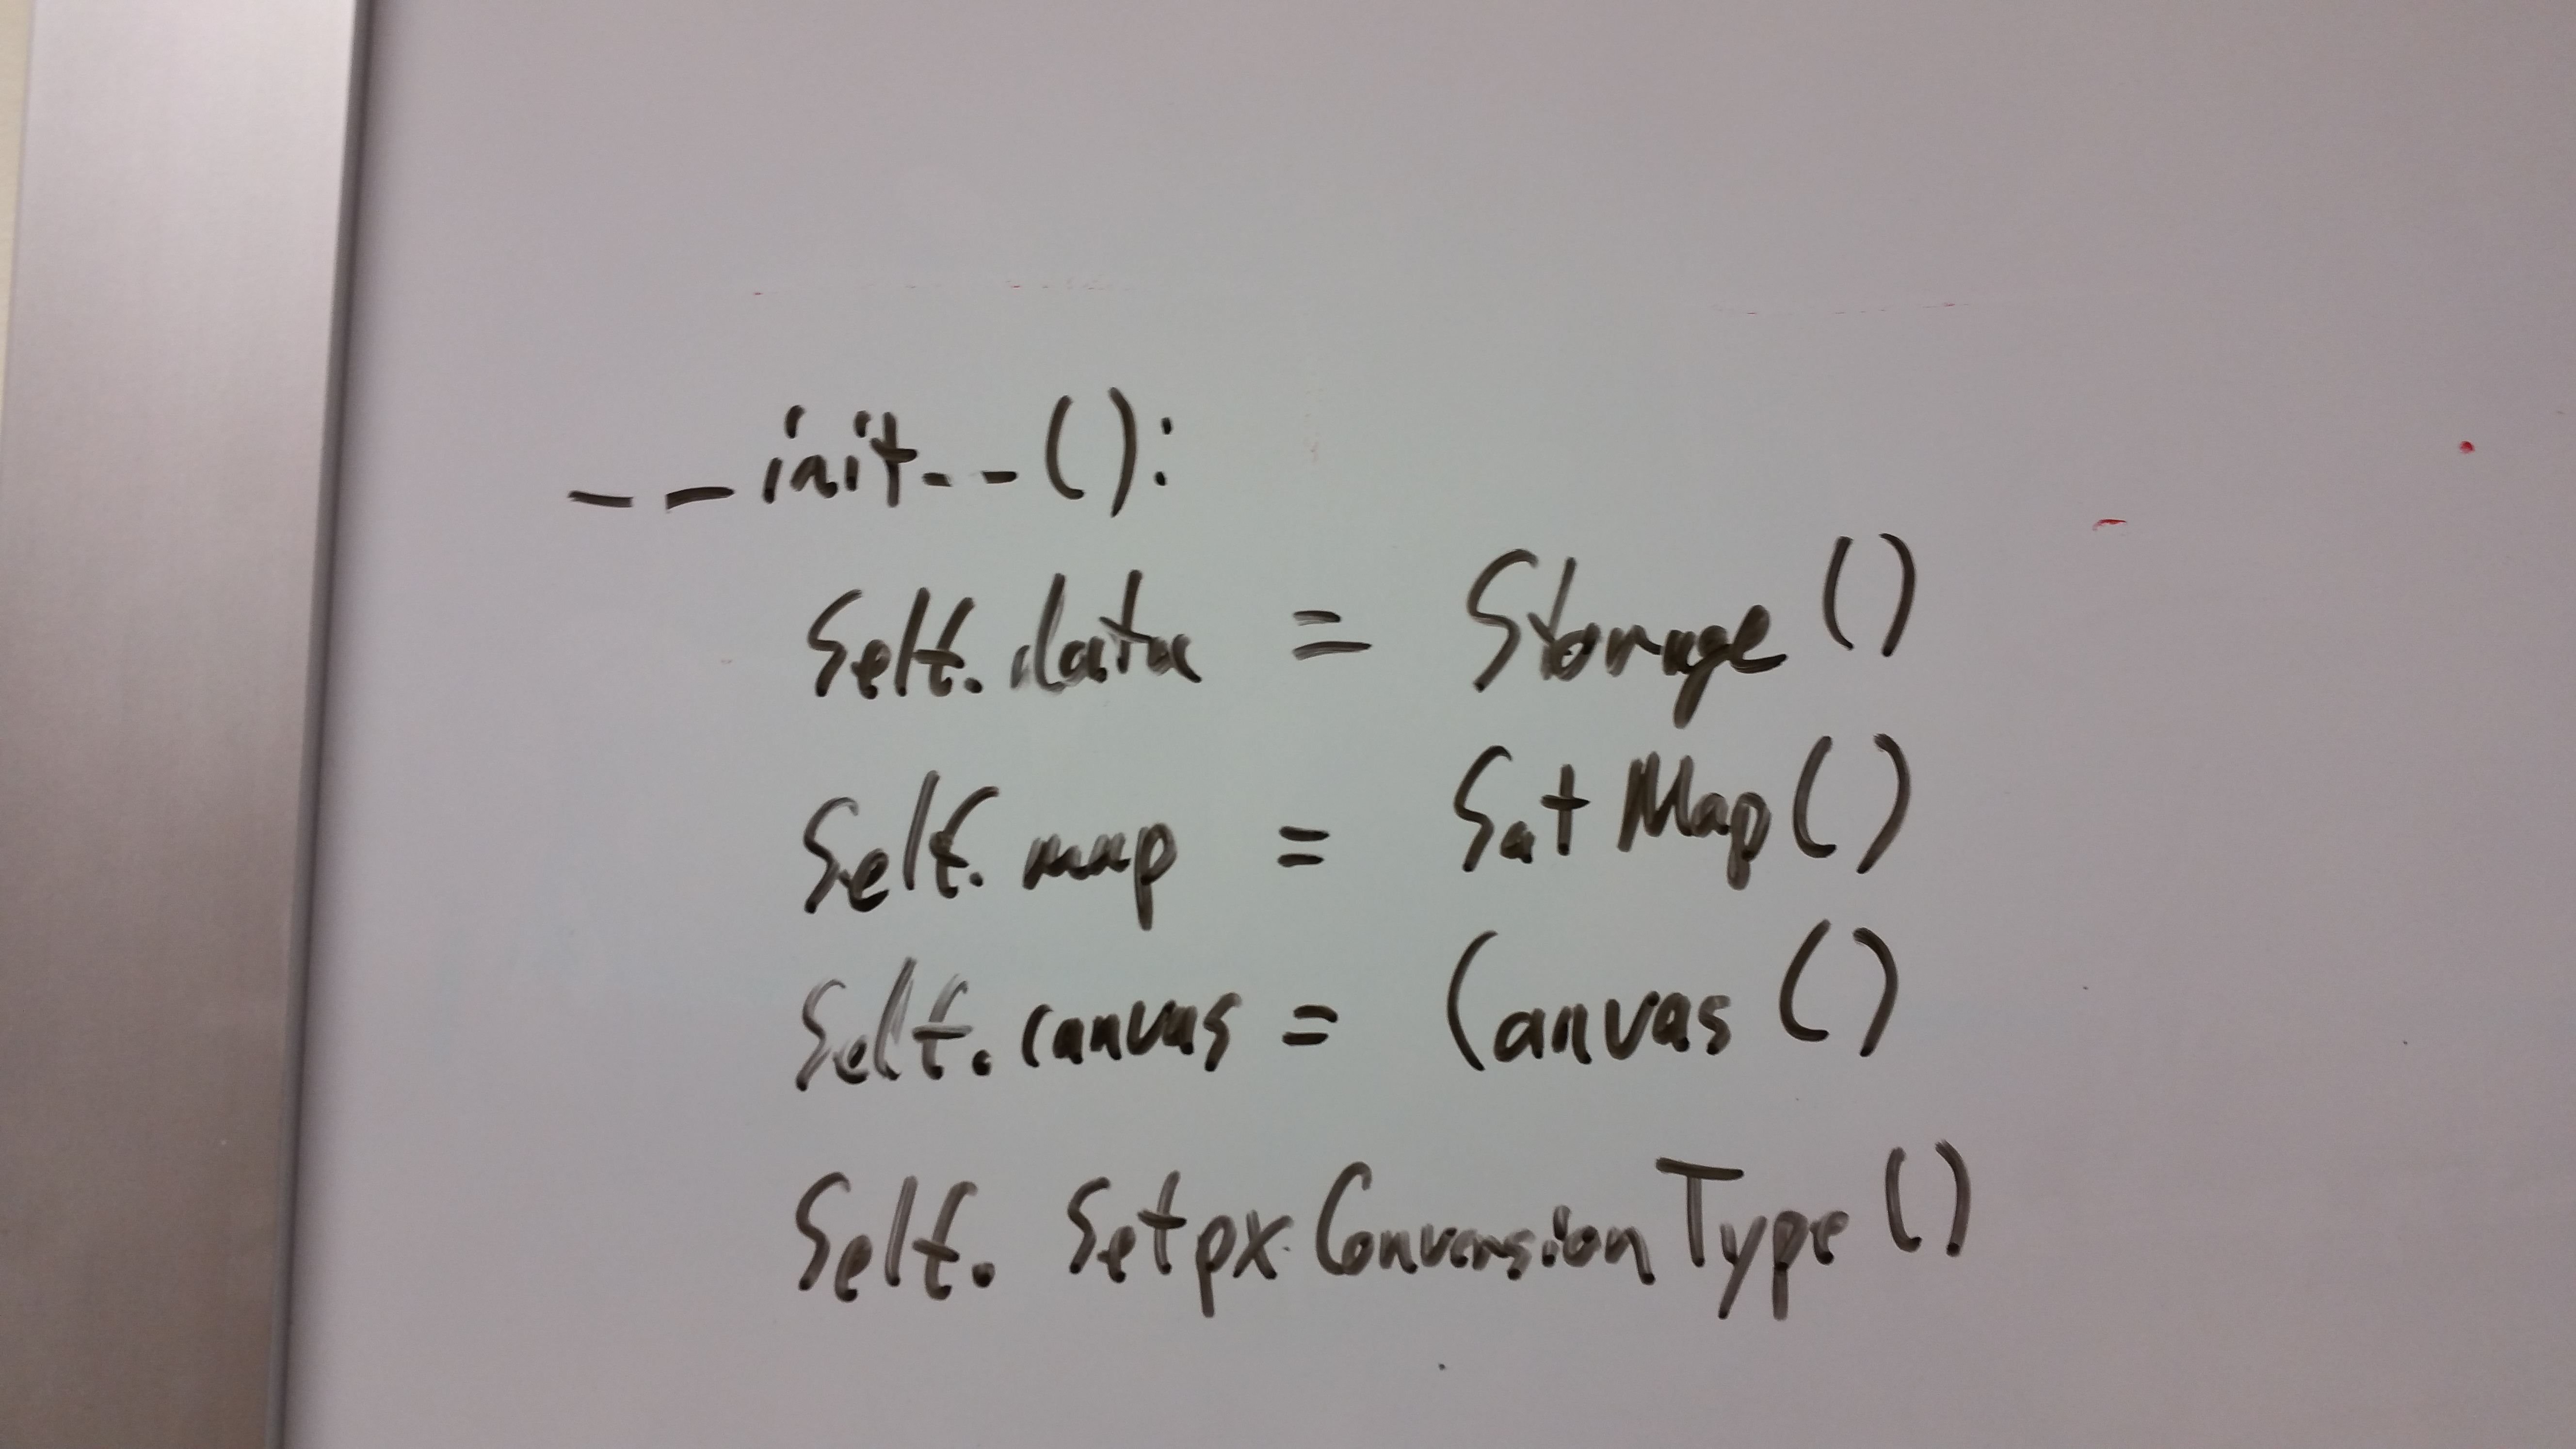 __init__():
self.data = Storage()
self.map = SatMap()
self.canvas = Canvas()
self.SetpxConversionType()